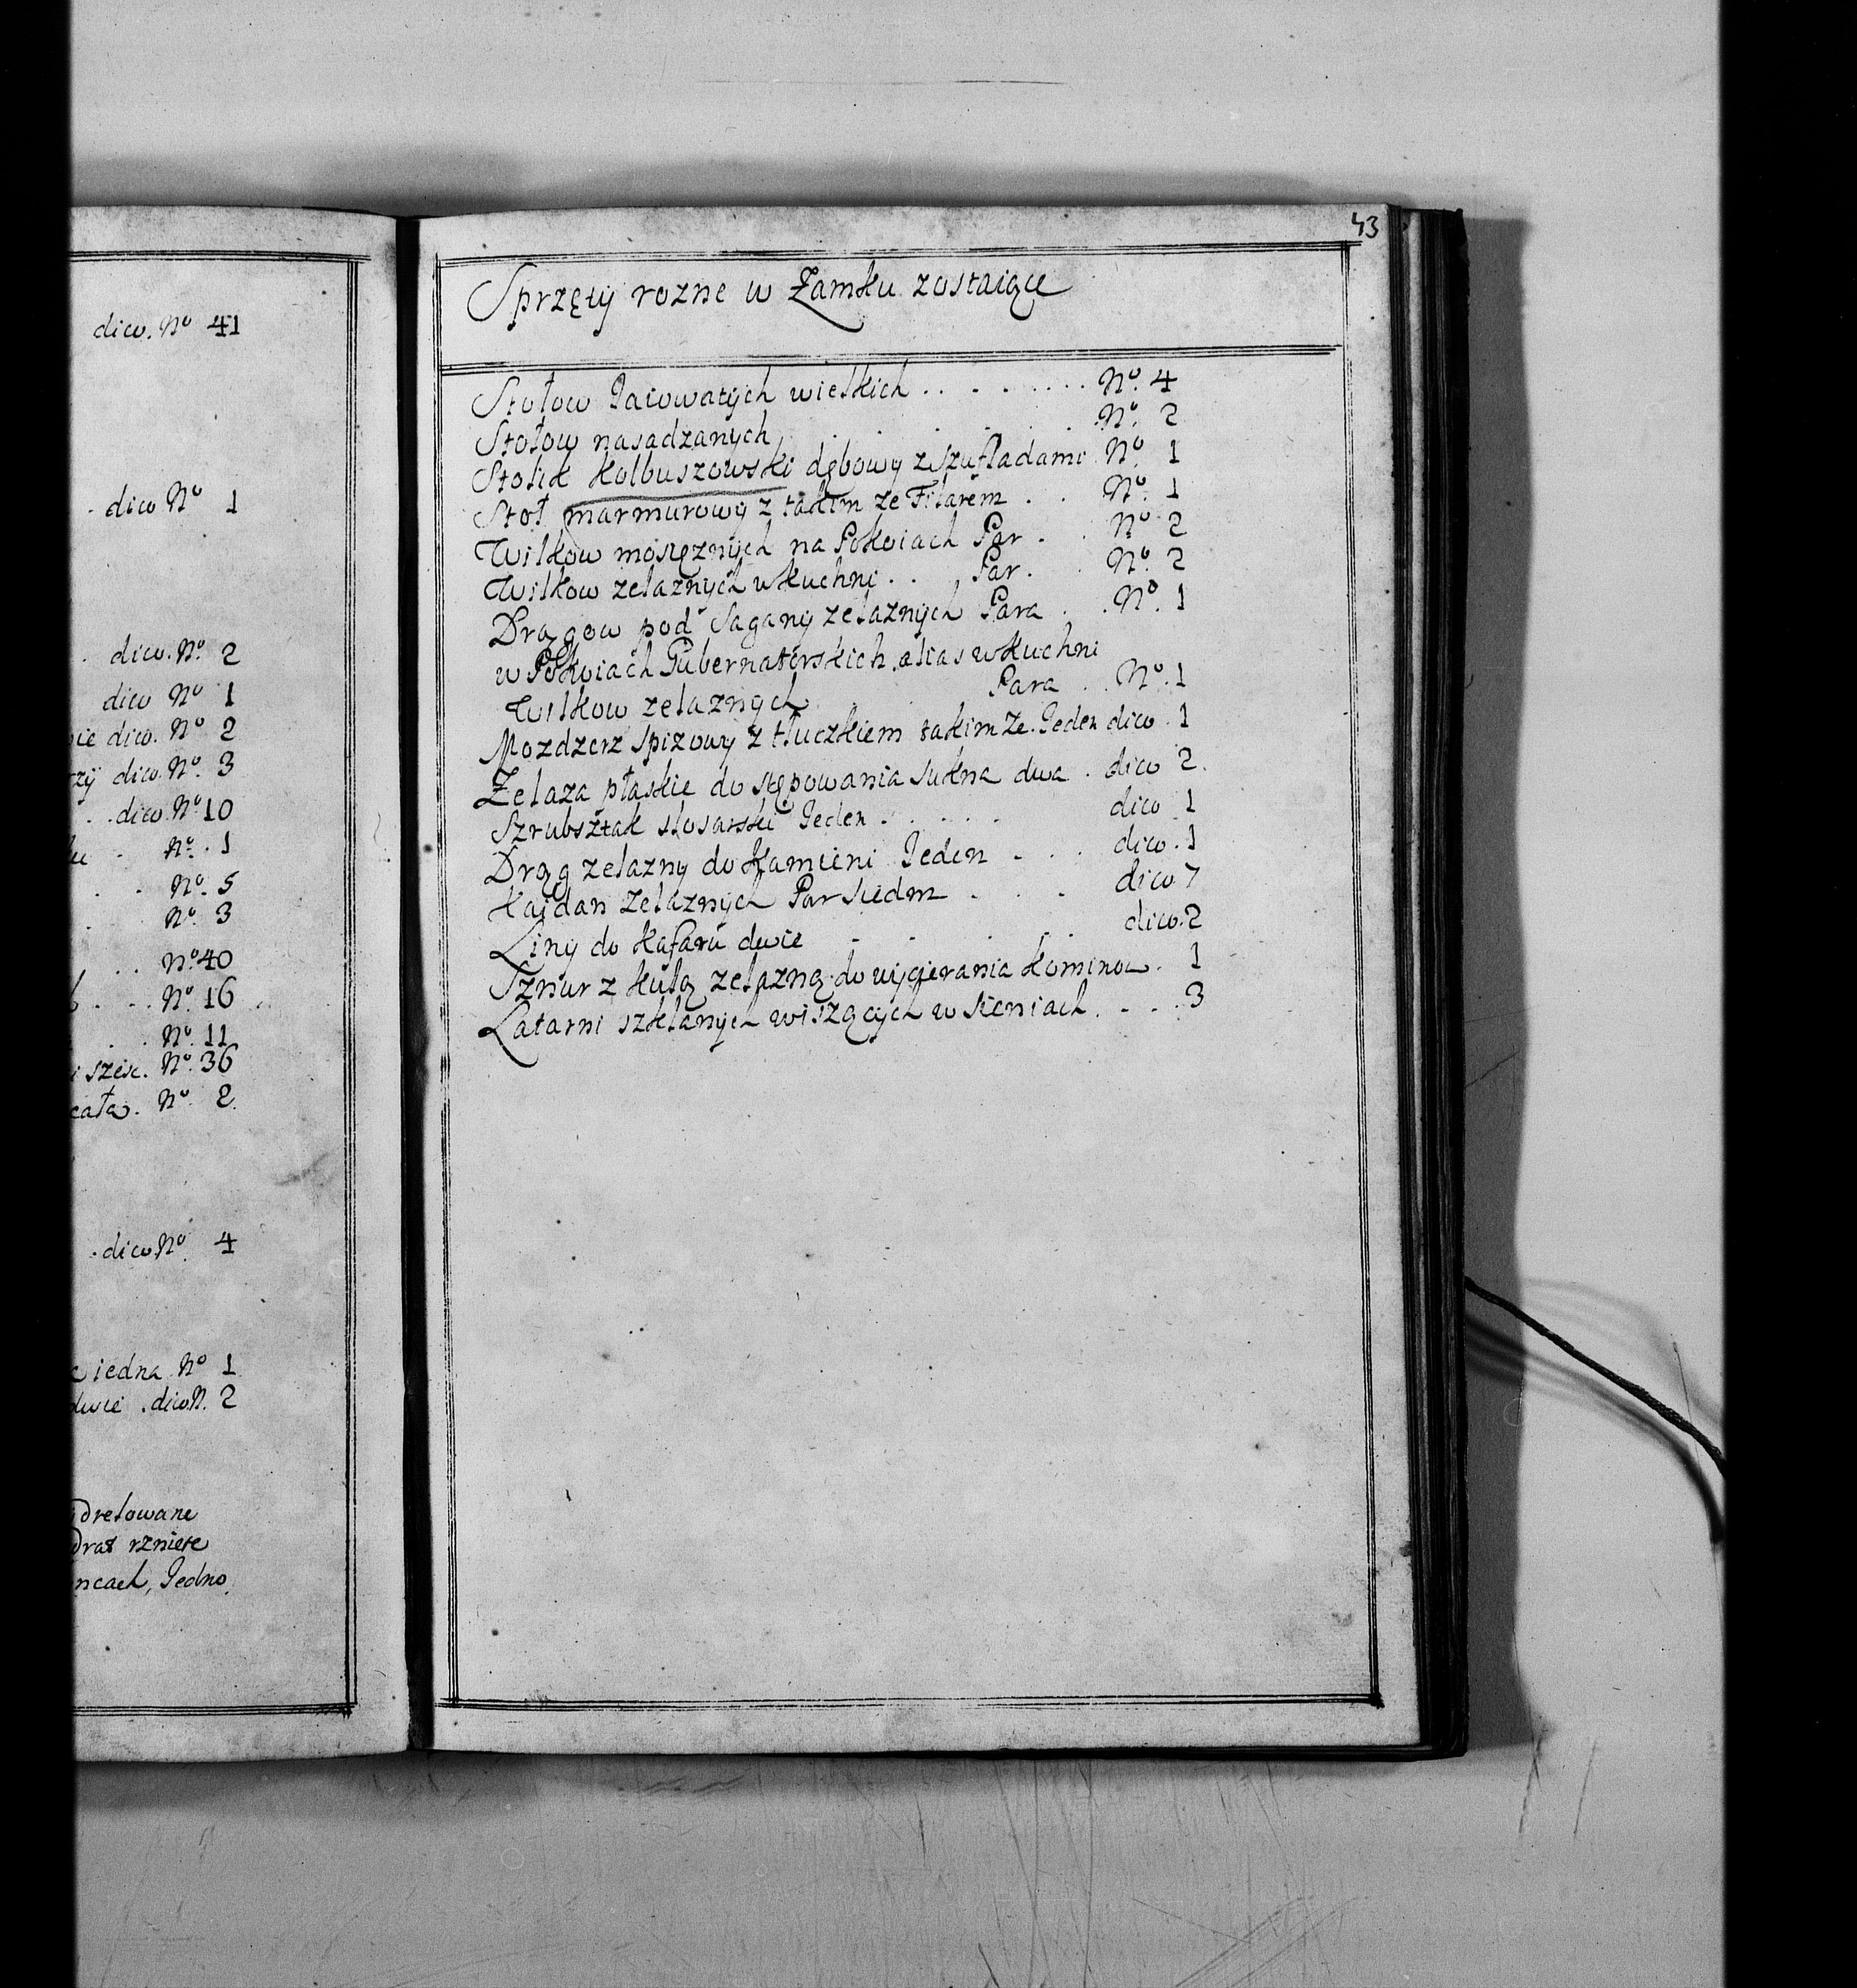 dico. No 41
dico No 1
dico. No. 2
dico No 1
dico. No 2
dico. No. 3
dico. No. 10
No. 1
No. 5
No. 3
No. 40
No. 16
No. 11
No. 36
No. 2
dico No 4
iedna No 1
dwie . dico N. 2
rzniete
Jedno
43
Sprzęty rozne w Zamku zostaiące
Stołow Jaiowatych wielkich . . . . . . . . No. 4
Stołow nasadzanych . . . . . No. 2
Stolik Kolbuszowski dębowy z szufladami No 1
Stoł marmurowy z takim ze Filarem . . No. 1
Wilkow mosięznych na Pokoiach Par . . No 2
Wilkow zelaznych w Kuchni . . Par . . No. 2
Drągow pod Sagany zelaznych Para . . No. 1
w Pokoiach Gubernatorskich alias w Kuchni
Wilkow zelaznych Para . . No. 1
Mozdzerz spizowy z tłuczkiem takim ze. Jeden dico . 1
Zelaza płaskie do stępowania sukna dwa . dico 2.
Szrubsztak slosarski Jeden . . . . . dico 1
Drąg zelazny do Kamieni Jeden . . . dico . 1
Kajdan zelaznych Par siedm . . . dico 7
Liny do Kafaru dwie . . . . . dico. 2
Sznur z kulą zelazną do wycierania Kominow . 1
Latarni szklanych wiszących w sieniach . . . . 3